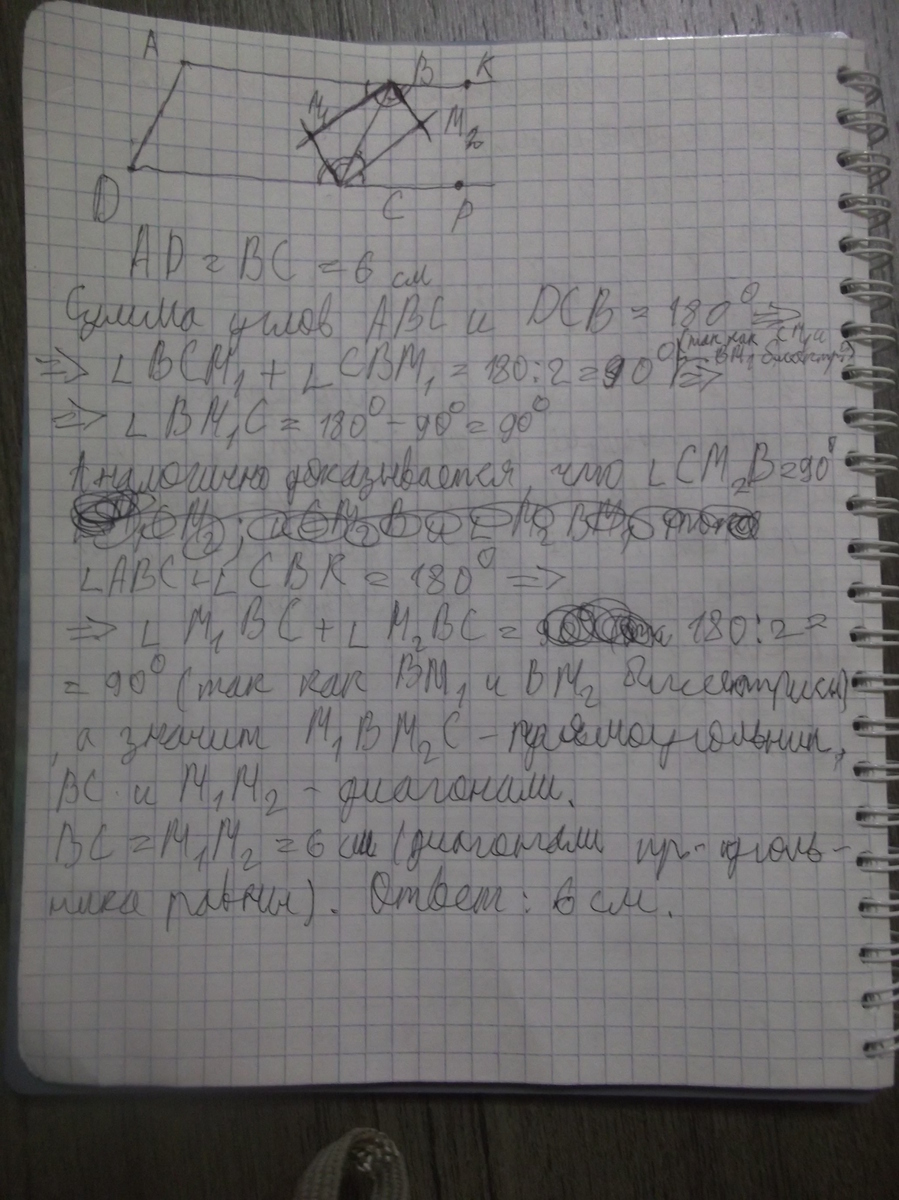 A B K
M₁ M₂
D C P
AD = BC = 6 см
Сумма углов ABC и DCB = 180° =>
=> ∠BCM₁ + ∠CBM₁ = 180:2 = 90° (так как CM₁ и BM₁ биссектр) =>
=> ∠BM₁C = 180° - 90° = 90°
Аналогично доказывается, что ∠CM₂B = 90°
∠ABC + ∠CBK = 180° =>
=> ∠M₁BC + ∠M₂BC = 180:2 =
= 90° (так как BM₁ и BM₂ биссектрисы)
, а значит M₁BM₂C - прямоугольник,
BC и M₁M₂ - диагонали.
BC = M₁M₂ = 6 см (диагонали пр-уголь-
ника равны). Ответ: 6 см.